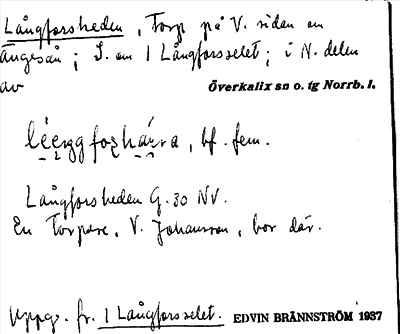 Långforsheden, Torp på V. sidan om
Ängesån; S. om 1 Långforsselet; i N. delen
av Överkalix sn o. tg Norrb. l.
léeŋgforhárra, bf. fem.
Långforsheden G. 30 NV.
En Torpare, V. Johansson, bor där.
Uppg. fr. 1 Långforsselet. EDVIN BRÄNNSTRÖM 1937